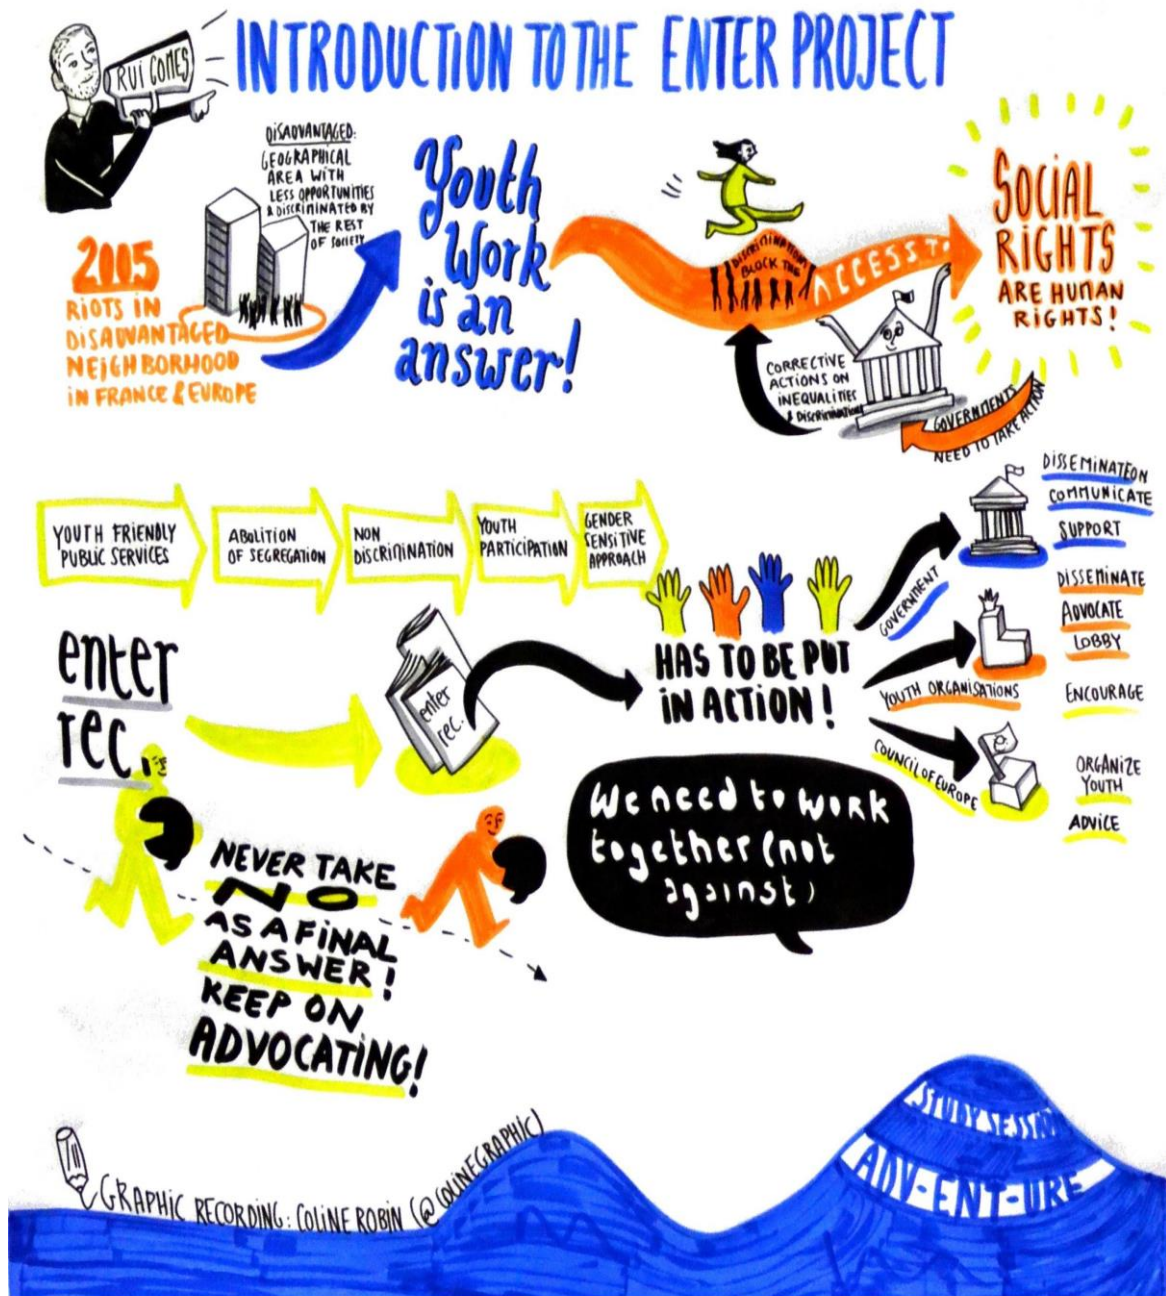 INTRODUCTION TO THE ENTER PROJECT
RUI GOMES
DISADVANTAGED:
GEOGRAPHICAL
AREA WITH
LESS OPPORTUNITIES
& DISCRIMINATED BY
THE REST
OF SOCIETY
2005
RIOTS IN
DISADVANTAGED
NEIGHBORHOOD
IN FRANCE & EUROPE
Youth
Work
is an
answer!
DISCRIMINATIONS
BLOCK THE
ACCESS TO
SOCIAL
RIGHTS
ARE HUMAN
RIGHTS!
CORRECTIVE
ACTIONS ON
INEQUALITIES
& DISCRIMINATION
GOVERNMENTS
NEED TO TAKE ACTION
YOUTH FRIENDLY
PUBLIC SERVICES
ABOLITION
OF SEGREGATION
NON
DISCRIMINATION
YOUTH
PARTICIPATION
GENDER
SENSITIVE
APPROACH
enter
rec.
enter
rec.
HAS TO BE PUT
IN ACTION!
GOVERNMENT
DISSEMINATION
COMMUNICATE
SUPPORT
YOUTH ORGANISATIONS
DISSEMINATE
ADVOCATE
LOBBY
COUNCIL OF EUROPE
ENCOURAGE
ORGANIZE
YOUTH
ADVICE
We need to work
together (not
against)
NEVER TAKE
NO
AS A FINAL
ANSWER!
KEEP ON
ADVOCATING!
STUDY SESSION
ADV-ENT-URE
GRAPHIC RECORDING: COLINE ROBIN (@COLINEGRAPHIC)